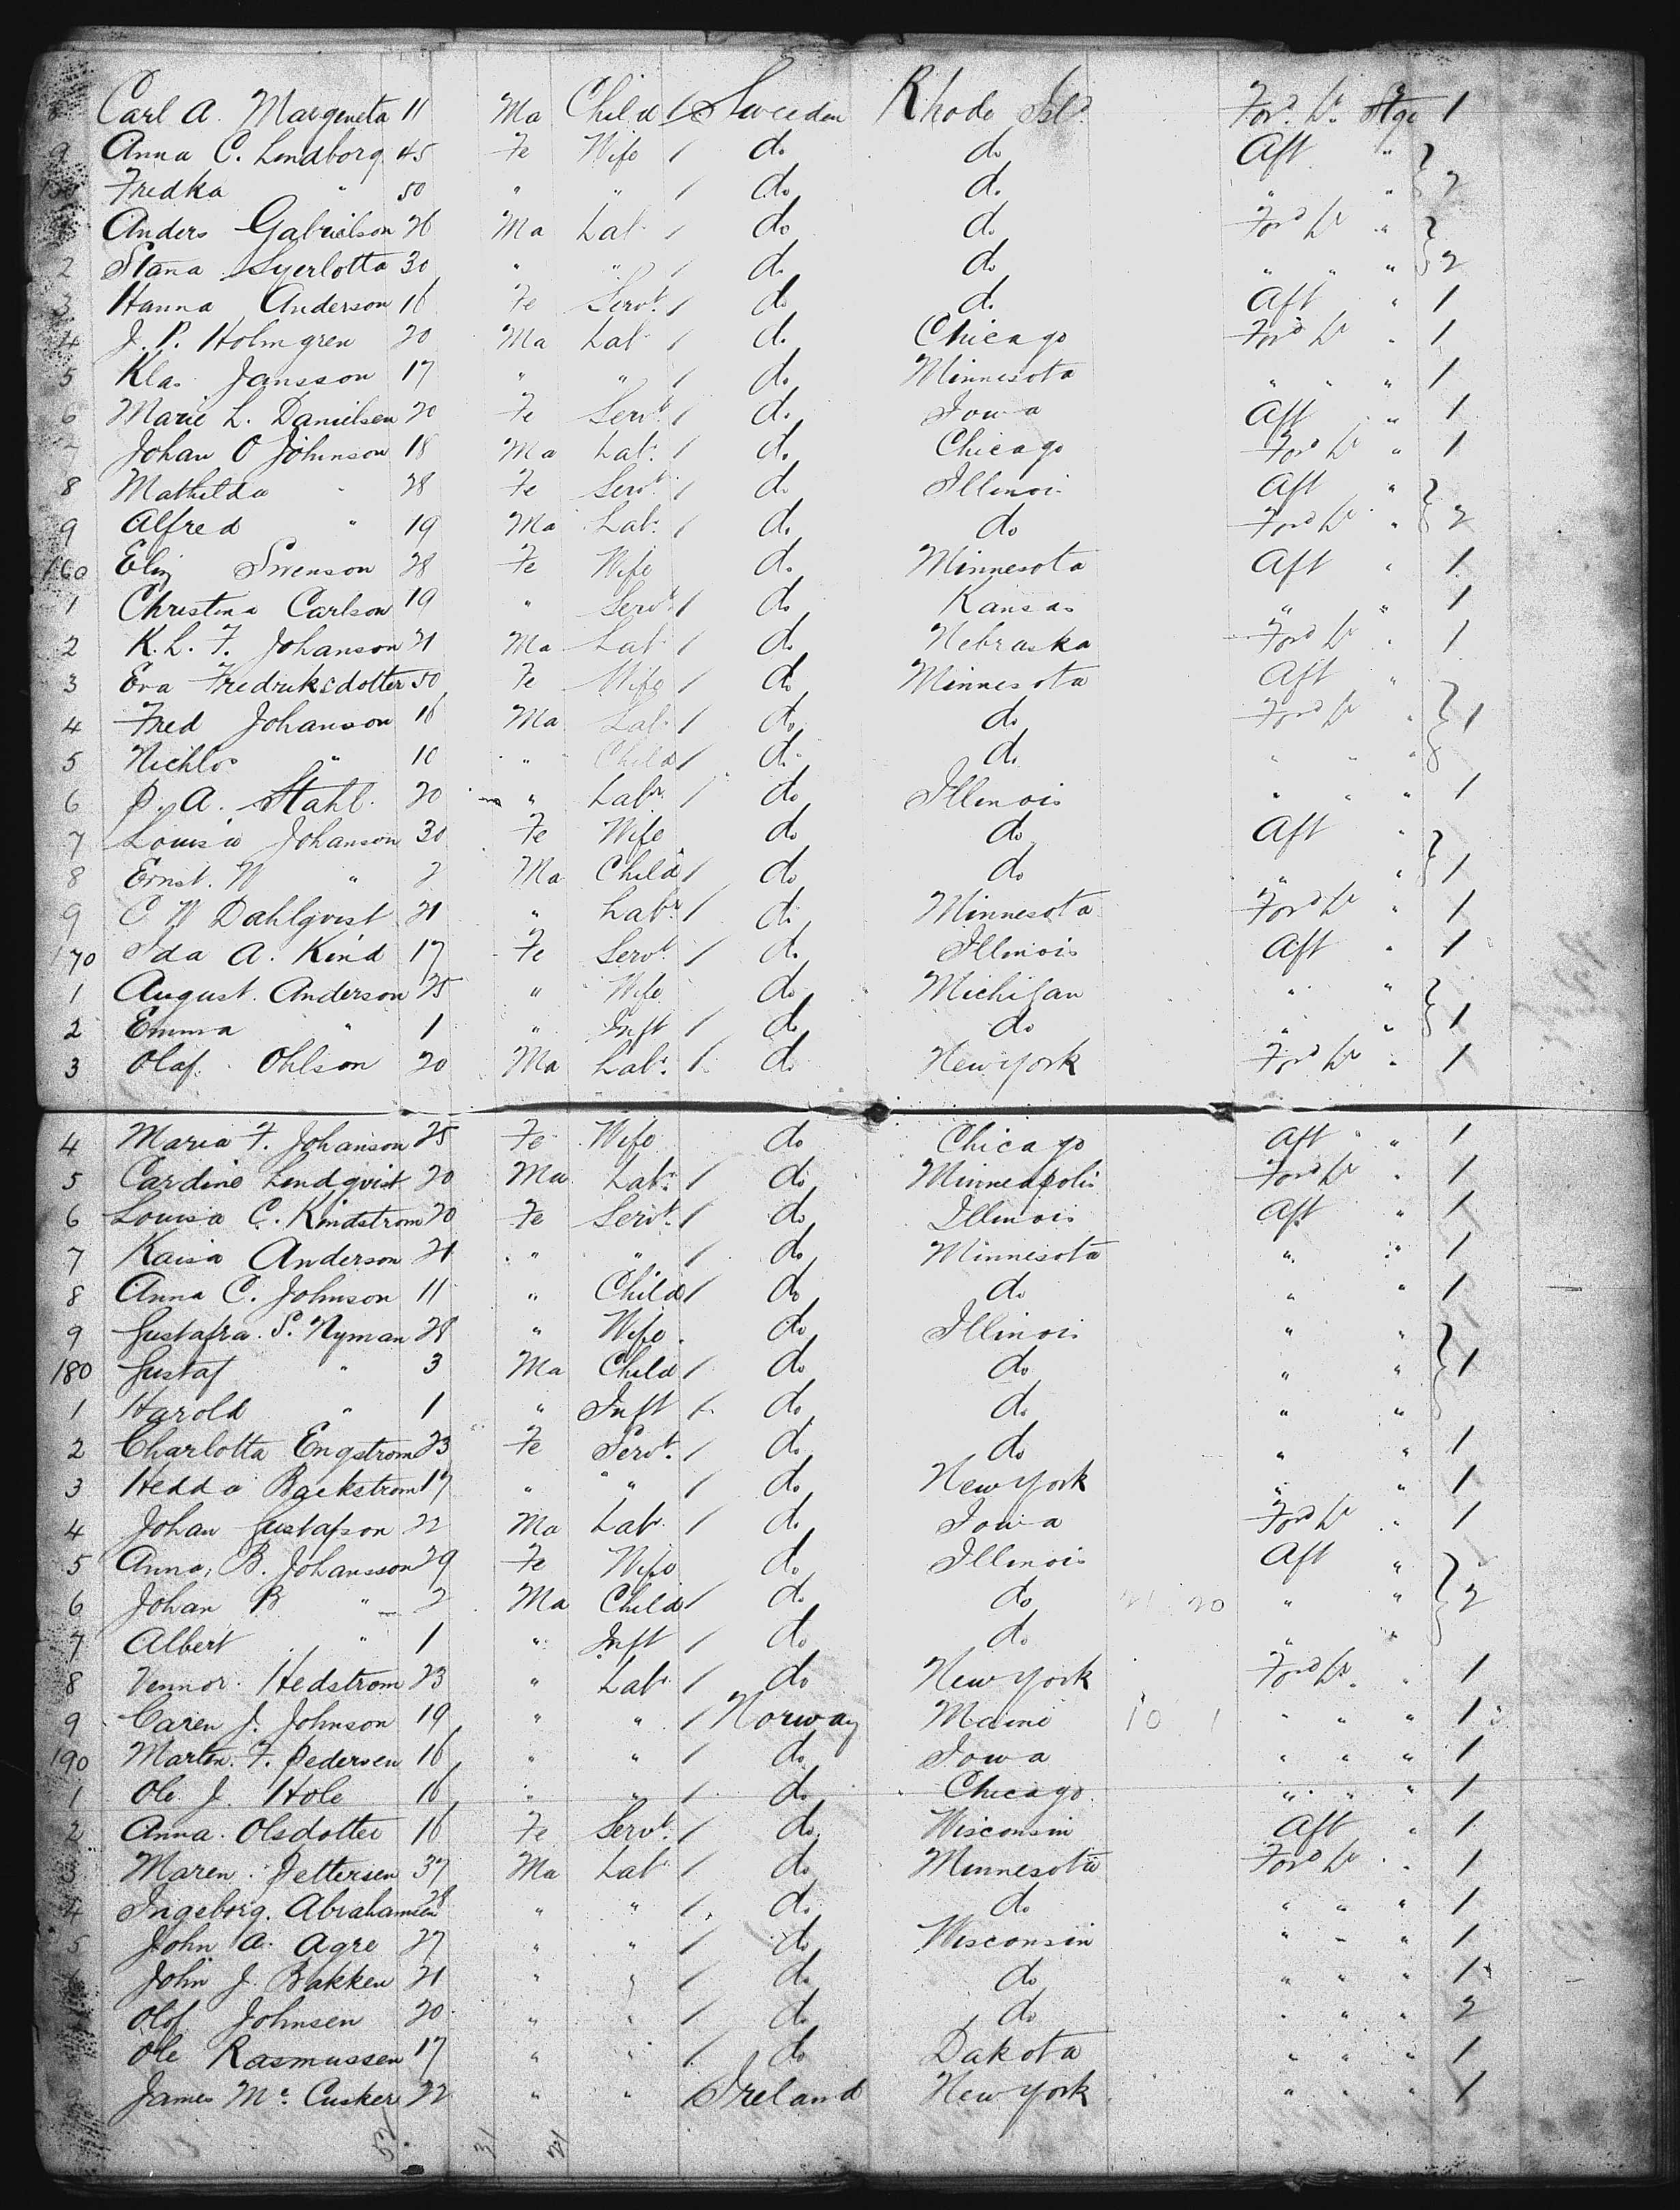 8 Carl A. Margeneta 11 Ma Child 1 Sweeden Rhode Isl.d For.d Dr. Stge 1
9 Anna C. Lindborg 45 Fe Wife 1 do do Aft "
150 Fredka " 50 " " 1 do do " " 2
1 Anders Gabrielson 26 Ma Lab.r 1 do do For.d Dr "
2 Stana Syerlotta 30 " " 1 do do " " " 2
3 Hanna Anderson 16 Fe Serv.t 1 do do Aft " 1
4 J. P. Holmgren 20 Ma Lab.r 1 do Chicago For.d Dr " 1
5 Klas Jansson 17 " " 1 do Minnesota " " " 1
6 Marie L. Danielsen 20 Fe Serv.t 1 do Iowa Aft " 1
7 Johan O Johnson 18 Ma Lab.r 1 do Chicago For.d Dr " 1
8 Mathilda " 28 Fe Serv.t 1 do Illinois Aft "
9 Alfred " 19 Ma Lab.r 1 do do For.d Dr " 2
160 Eliz Swenson 28 Fe Wife do Minnesota Aft " 1
1 Christina Carlson 19 " Serv.t 1 do Kansas " " 1
2 K. L. F. Johanson 21 Ma Lab.r 1 do Nebraska For.d Dr " 1
3 Eva Fredriksdotter 50 Fe Wife 1 do Minnesota Aft "
4 Fred Johanson 16 Ma Lab.r 1 do do For.d Dr " 1
5 Nichlos " 10 " Child 1 do do " " "
6 P. A. Stahl 20 " Lab.r 1 do Illinois " " " 1
7 Louisa Johanson 30 Fe Wife do do Aft "
8 Ernst. W " 2 Ma Child 1 do do " " 1
9 C W Dahlqvist 21 " Lab.r 1 do Minnesota For.d Dr " 1
170 Ida A. Kind 17 Fe Serv.t 1 do Illinois Aft " 1
1 August. Anderson 25 " Wife do Michigan " "
2 Emma " 1 " Inft 1 do do " " 1
3 Olaf. Ohlson 20 Ma Lab.r 1 do New york For.d Dr " 1
4 Maria F. Johanson 25 Fe Wife do Chicago Aft " 1
5 Cardine Lindqvist 20 Ma Lab.r 1 do Minneapolis For.d Dr " 1
6 Louisa C. Kindstrom 20 Fe Serv.t 1 do Illinois Aft " 1
7 Kaisa Anderson 21 " " 1 do Minnesota " " 1
8 Anna C. Johnson 11 " Child 1 do do " " 1
9 Gustafva. S. Nyman 28 " Wife do Illinois " "
180 Gustaf " 3 Ma Child 1 do do " " 1
1 Harold " 1 " Inft 1 do do " "
2 Charlotta Engstrom 23 Fe Serv.t 1 do do " " 1
3 Hedda Backstrom 17 " " 1 do New york " " 1
4 Johan Gustafson 22 Ma Lab.r 1 do Iowa For.d Dr " 1
5 Anna, B. Johansson 29 Fe Wife do Illinois Aft "
6 Johan B " 2 Ma Child 1 do do 20 " " 2
7 Albert " 1 " Inft 1 do do " "
8 Vennor. Hedstrom 23 " Lab.r 1 do New york For.d Dr " 1
9 Caren J. Johnson 19 " " 1 Norway Maine 10 1 " " " 1
190 Marten. F. Pedersen 16 " " 1 do Iowa " " " 1
1 Ole. J. Hole 16 " " 1 do Chicago " " " 1
2 Anna. Olsdotter 16 Fe Serv.t 1 do Wisconsin Aft " 1
3 Maren. Pettersen 37 Ma Lab.r 1 do Minnesota For.d Dr " 1
4 Ingeborg. Abrahamsen 28 " " 1 do do " " " 1
5 John A. Agre 27 " " 1 do Wisconsin " " " 1
John J. Bakken 21 " " 1 do do " " " 1
Olof Johnsen 20 " " 1 do do " " " 2
Ole Rasmussen 17 " " 1 do Dakota " " " 1
9 James Mc. Cusker 22 " " 1 Ireland New York " " " 1
31 21